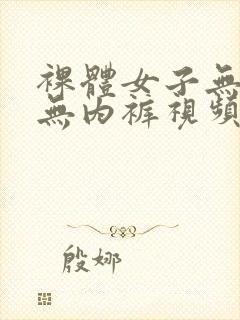 裸體女子無
無內裤視頻
殷娜